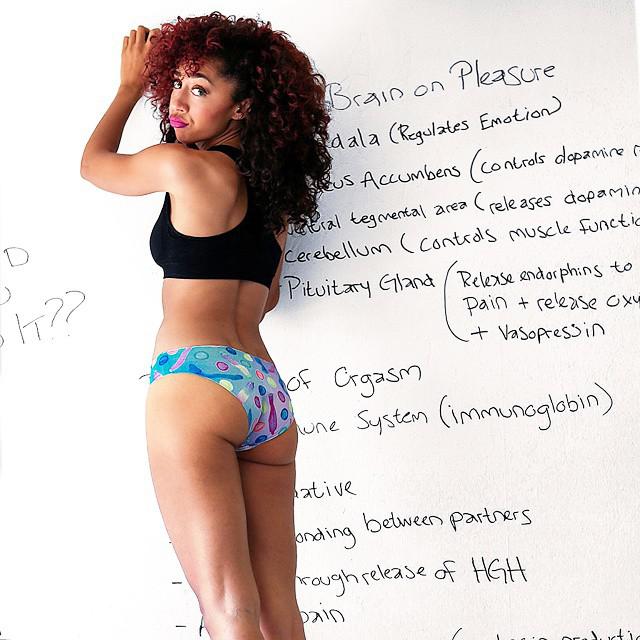 Brain on Pleasure
dala (Regulates Emotion)
eus Accumbens (controls dopamine r
ntral tegmental area (releases dopamin
cerebellum (controls muscle functio
Pituitary Gland (Release endorphins to
pain + release oxy
+ Vasopressin
D
IT??
of Orgasm
une System (immunoglobin)
ative
onding between partners
- rough release of HGH
- pain